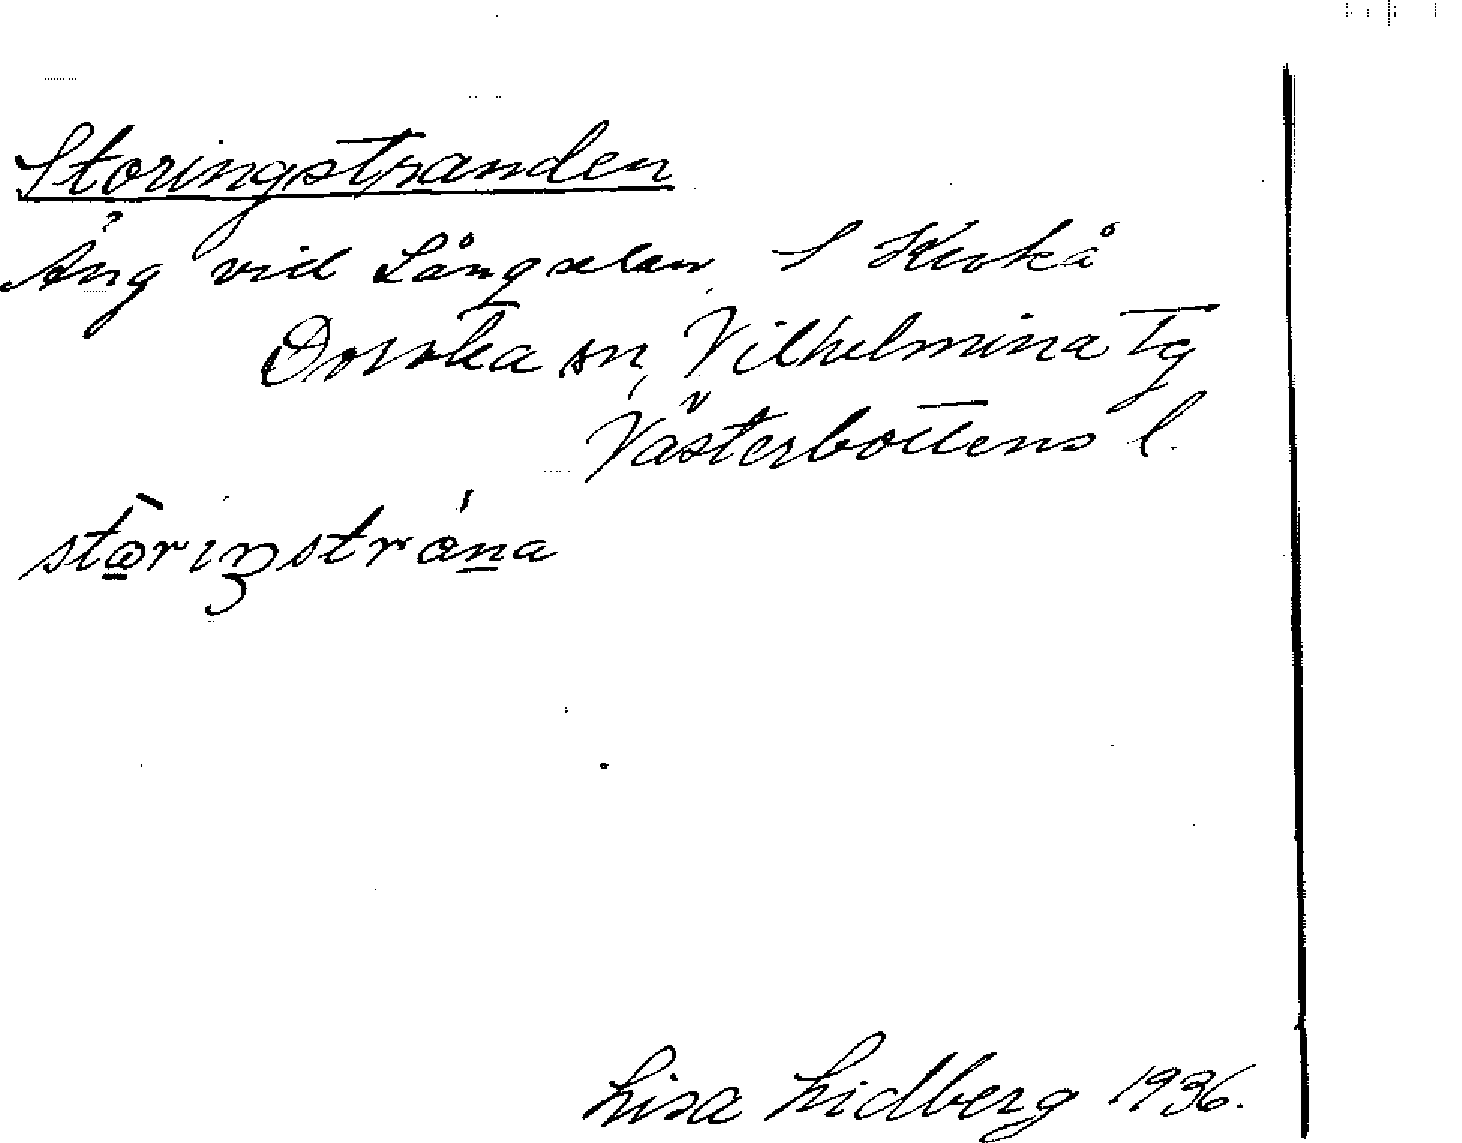 Storingstranden
Äng vid Långselån, S Kvokå
Dorotea sn, Vilhelmina Tg
Västerbottens l.
stȯriŋstrána
Lisa Lidberg 1936.